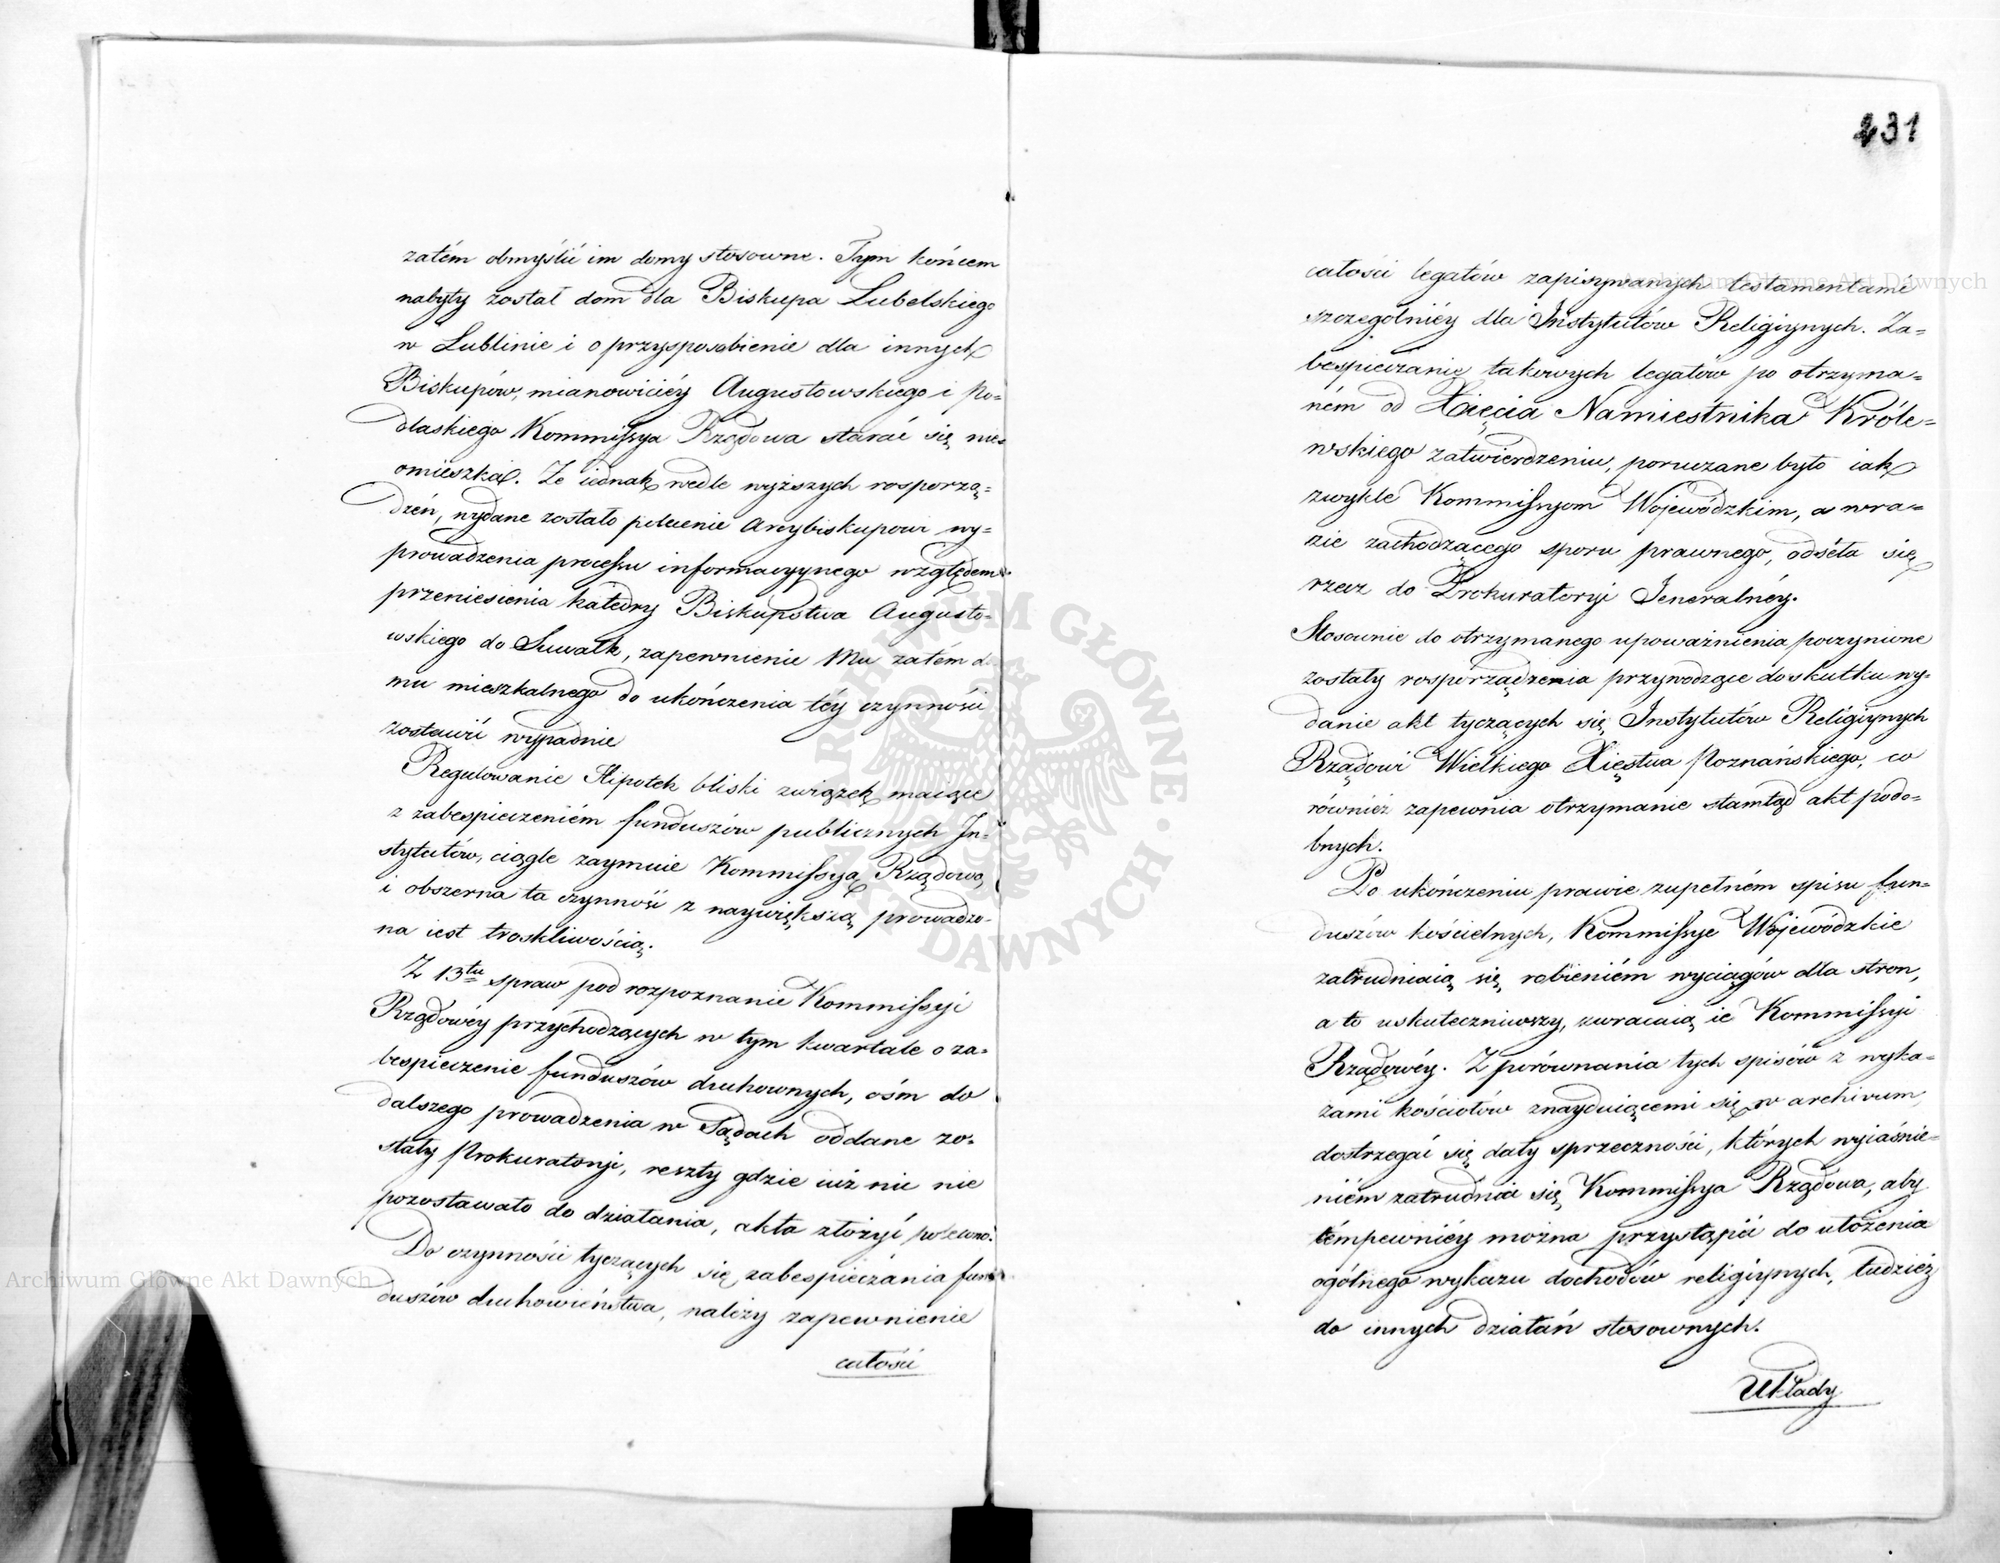 zatém obmyślić im domy stosowne. Tym końcem
nabyty został dom dla Biskupa Lubelskiego
w Lublinie i o przysposobienie dla innych
Biskupów, mianowiciéy Augustowskiego i Po=
dlaskiego Kommissya Rządowa starać się nie
omieszka. Ze iednak wedle wyższych rosporzą=
dzeń, wydane zostało polecenie Arcybiskupowi wy=
prowadzenia processu informacyynego względem
przeniesienia katedry Biskupstwa Augusto=
wskiego do Suwałk, zapewnienie Mu zatém do
mu mieszkalnego do ukończenia téy czynności
zostawić wypadnie
Regulowanie Hipotek bliski związek maiące
z zabespieczeniém funduszów publicznych In=
stytutów, ciągle zaymuie Kommissyą Rządową,
i obszerna ta czynność z naywiększą prowadzo=
na iest troskliwością.
Z 13tu spraw pod rozpoznanie Kommissyi
Rządowéy przychodzących w tym kwartale o za=
bespieczenie funduszów duchownych, ośm do
dalszego prowadzenia w Sądach oddane zo=
stały Prokuratoryi, reszty gdzie iuż nic nie
pozostawało do działania, akta złożyć polecono.
Do czynności tyczących się zabespieczania fun=
duszów duchowieństwa, należy zapewnienie
całości
431
całości legatów zapisywanych testamentami
szczególniéy dla Instytutów Religiynych. Za=
bespieczanie takowych legatów po otrzyma=
ném od Xięcia Namiestnika Króle=
wskiego zatwierdzeniu, poruczane było iak
zwykle Kommissyom Wojewódzkim, a w ra=
zie zachodzącego sporu prawnego, odséła się
rzecz do Prokuratoryi Jeneralnéy.
Stosownie do otrzymanego upoważnienia poczynione
zostały rosporządzenia przywodzące do skutku wy=
danie akt tyczących się Instytutów Religiynych
Rządowi Wielkiego Xięstwa Poznańskiego, co
również zapewnia otrzymanie stamtąd akt podo=
bnych.
Po ukończeniu prawie zupełném spisu fun=
duszów kościelnych, Kommissye Wojewódzkie
zatrudniaią się robieniém wyciągów dla stron,
a to uskuteczniwszy, zwracaią ie Kommissyi
Rządowéy. Z porównania tych spisów z wyka=
zami kościołów znayduiącemi się w archivum,
dostrzegać się dały sprzeczności, których wyiaśnie=
niém zatrudnia się Kommissya Rządowa, aby
témpewniéy można przystąpić do ułożenia
ogólnego wykazu dochodów religiynych, tudzież
do innych działań stosownych.
Układy
Archiwum Główne Akt Dawnych
Archiwum Główne Akt Dawnych
ARCHIWUM GŁÓWNE · AKT DAWNYCH ·